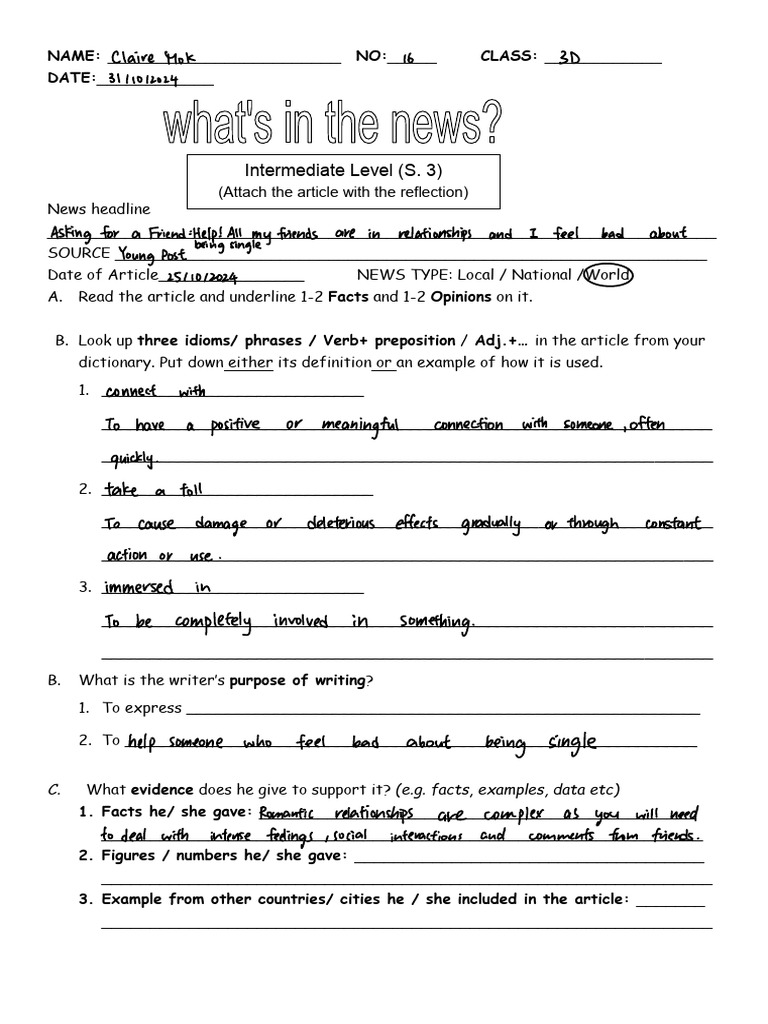 NAME: Claire Mok NO: 16 CLASS: 3D
DATE: 31/10/2024
what's in the news?
Intermediate Level (S. 3)
(Attach the article with the reflection)
News headline
Asking for a Friend: Help! All my friends are in relationships and I feel bad about
being single
SOURCE Young Post
Date of Article 25/10/2024 NEWS TYPE: Local / National / World
A. Read the article and underline 1-2 Facts and 1-2 Opinions on it.
B. Look up three idioms/ phrases / Verb+ preposition / Adj.+... in the article from your
dictionary. Put down either its definition or an example of how it is used.
1. connect with
To have a positive or meaningful connection with someone, often
quickly.
2. take a toll
To cause damage or deleterious effects gradually or through constant
action or use.
3. immersed in
To be completely involved in something.
B. What is the writer's purpose of writing?
1. To express
2. To help someone who feel bad about being single
C. What evidence does he give to support it? (e.g. facts, examples, data etc)
1. Facts he/ she gave: Romantic relationships are complex as you will need
to deal with intense feelings, social interactions and comments from friends.
2. Figures / numbers he/ she gave:
3. Example from other countries/ cities he / she included in the article: